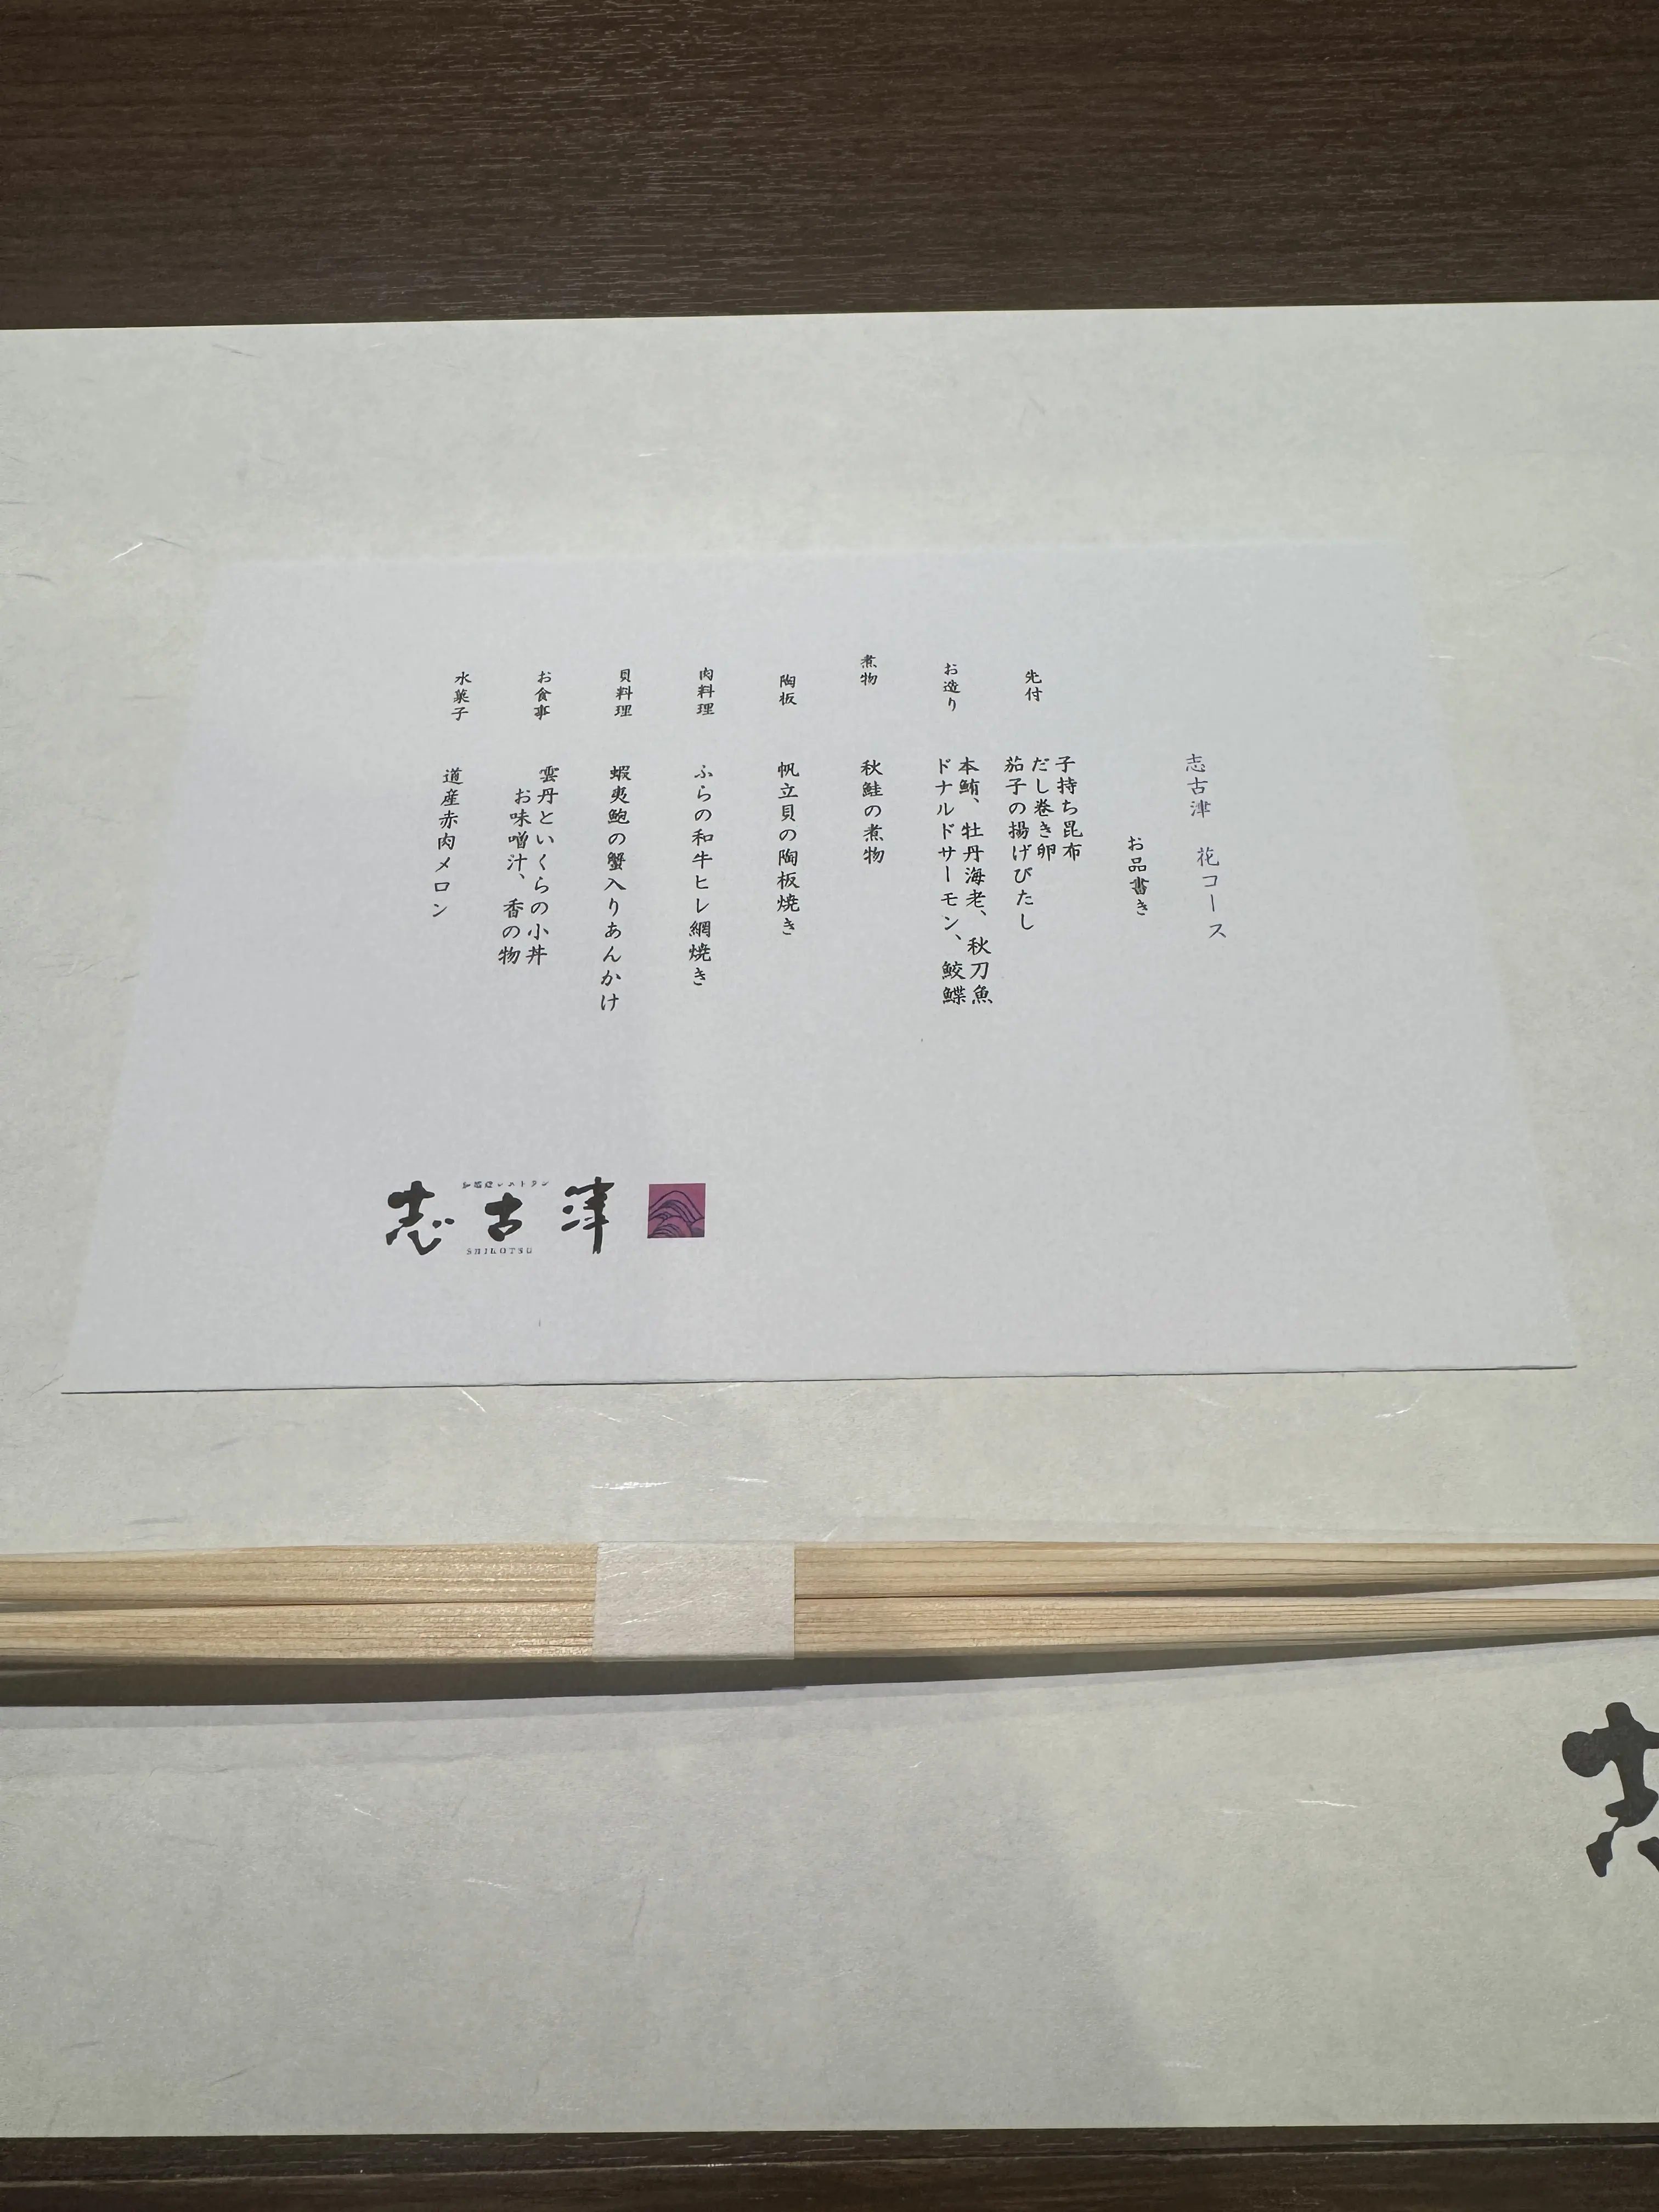 志古津 花コース
お品書き
先付
子持ち昆布
だし巻き卵
茄子の揚げびたし
お造り
本鮪、牡丹海老、秋刀魚
ドナルドサーモン、鮫鰈
煮物
秋鮭の煮物
陶板
帆立貝の陶板焼き
肉料理
ふらの和牛ヒレ網焼き
貝料理
蝦夷鮑の蟹入りあんかけ
お食事
雲丹といくらの小丼
お味噌汁、香の物
水菓子
道産赤肉メロン
志古津
SHIKOTSU
志